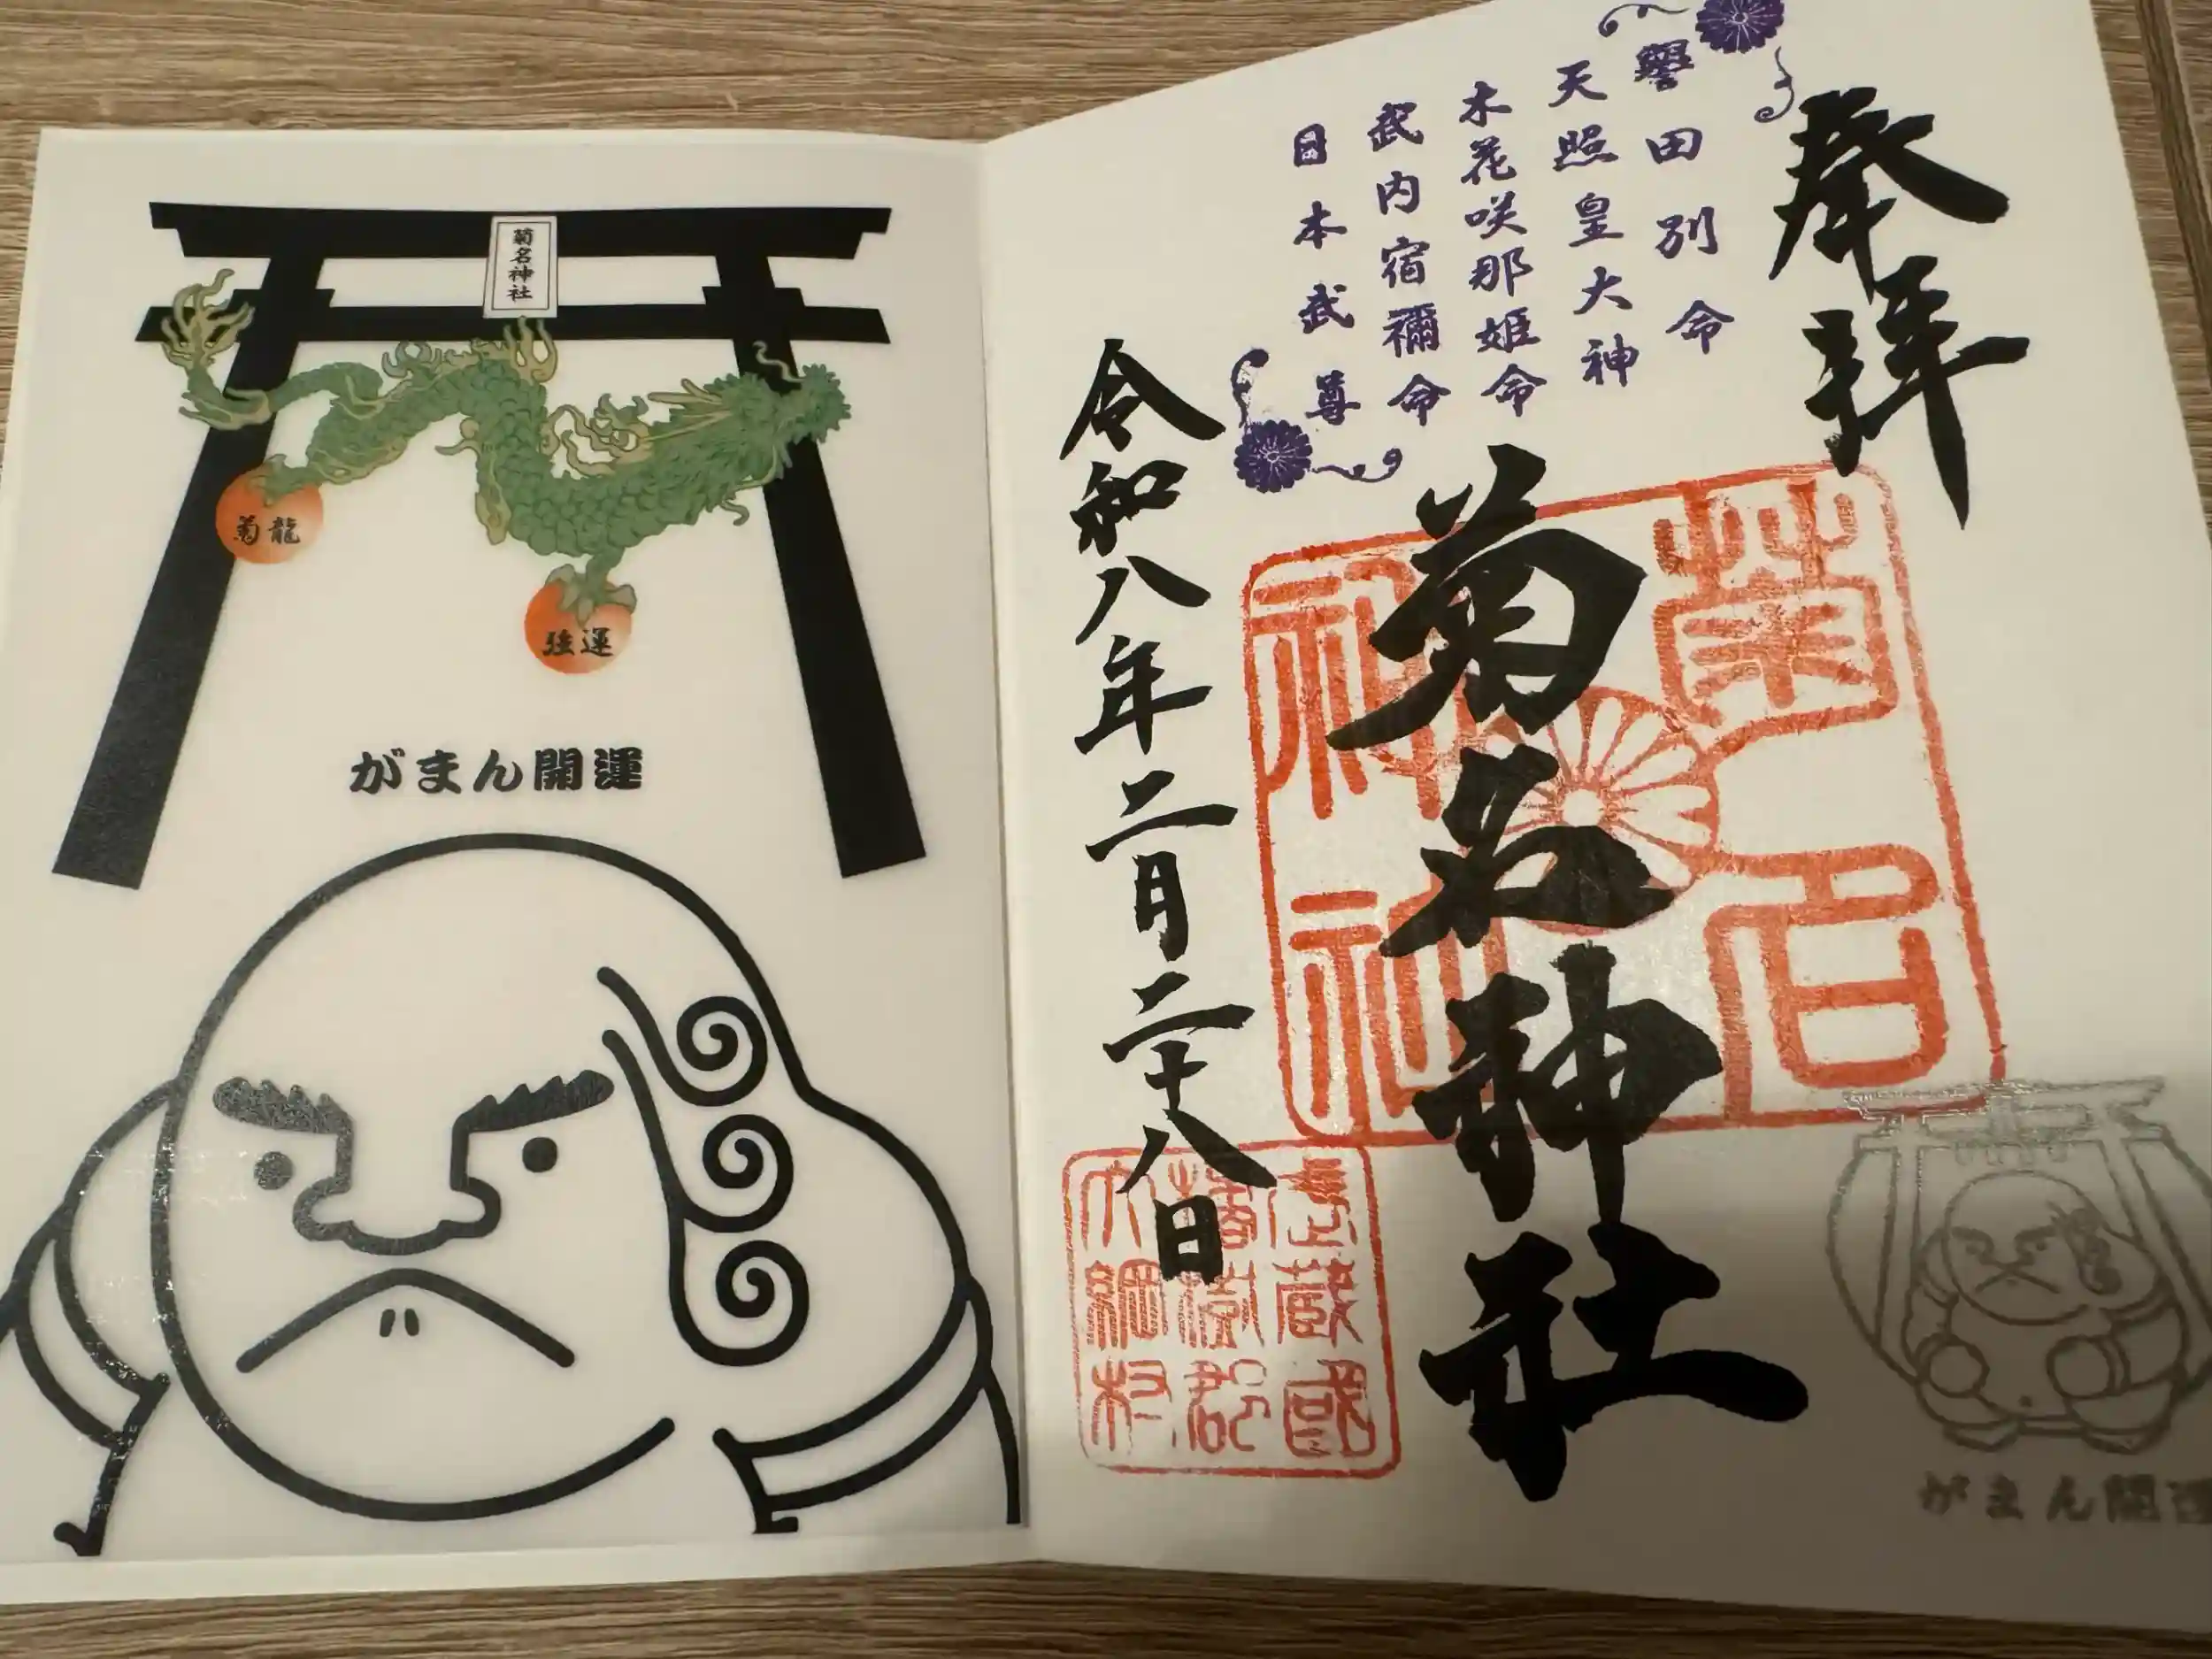 菊名神社
菊龍
強運
がまん開運
奉拝
譽田別命
天照皇大神
木花咲耶姫命
武内宿禰命
日本武尊
菊名神社
菊名神社
令和八年二月二十八日
武蔵國
橘樹郡
大綱村
がまん開運